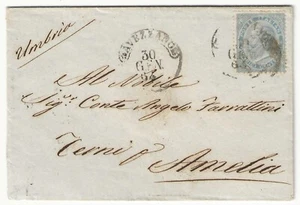 Umbria
AVEZZANO
30
GEN
Al Nobile
Sig.r Conte Angelo Farrattini
Terni p Amelia